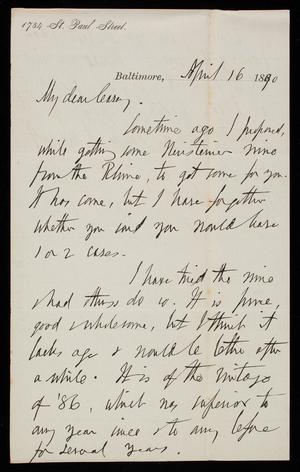 1724 St. Paul Street.
Baltimore, April 16 1890
My dear Casey,
Sometime ago I proposed,
while getting some Niersteiner wine
from the Rhine, to get some for you.
It has come, but I have forgotten
whether you said you would have
1 or 2 cases.
I have tried the wine
& had others do so. It is pure,
good & wholesome, but I think it
lacks age & would be better after
a while. It is of the vintage
of '86, which was superior to
any year since & to any before
for several years.